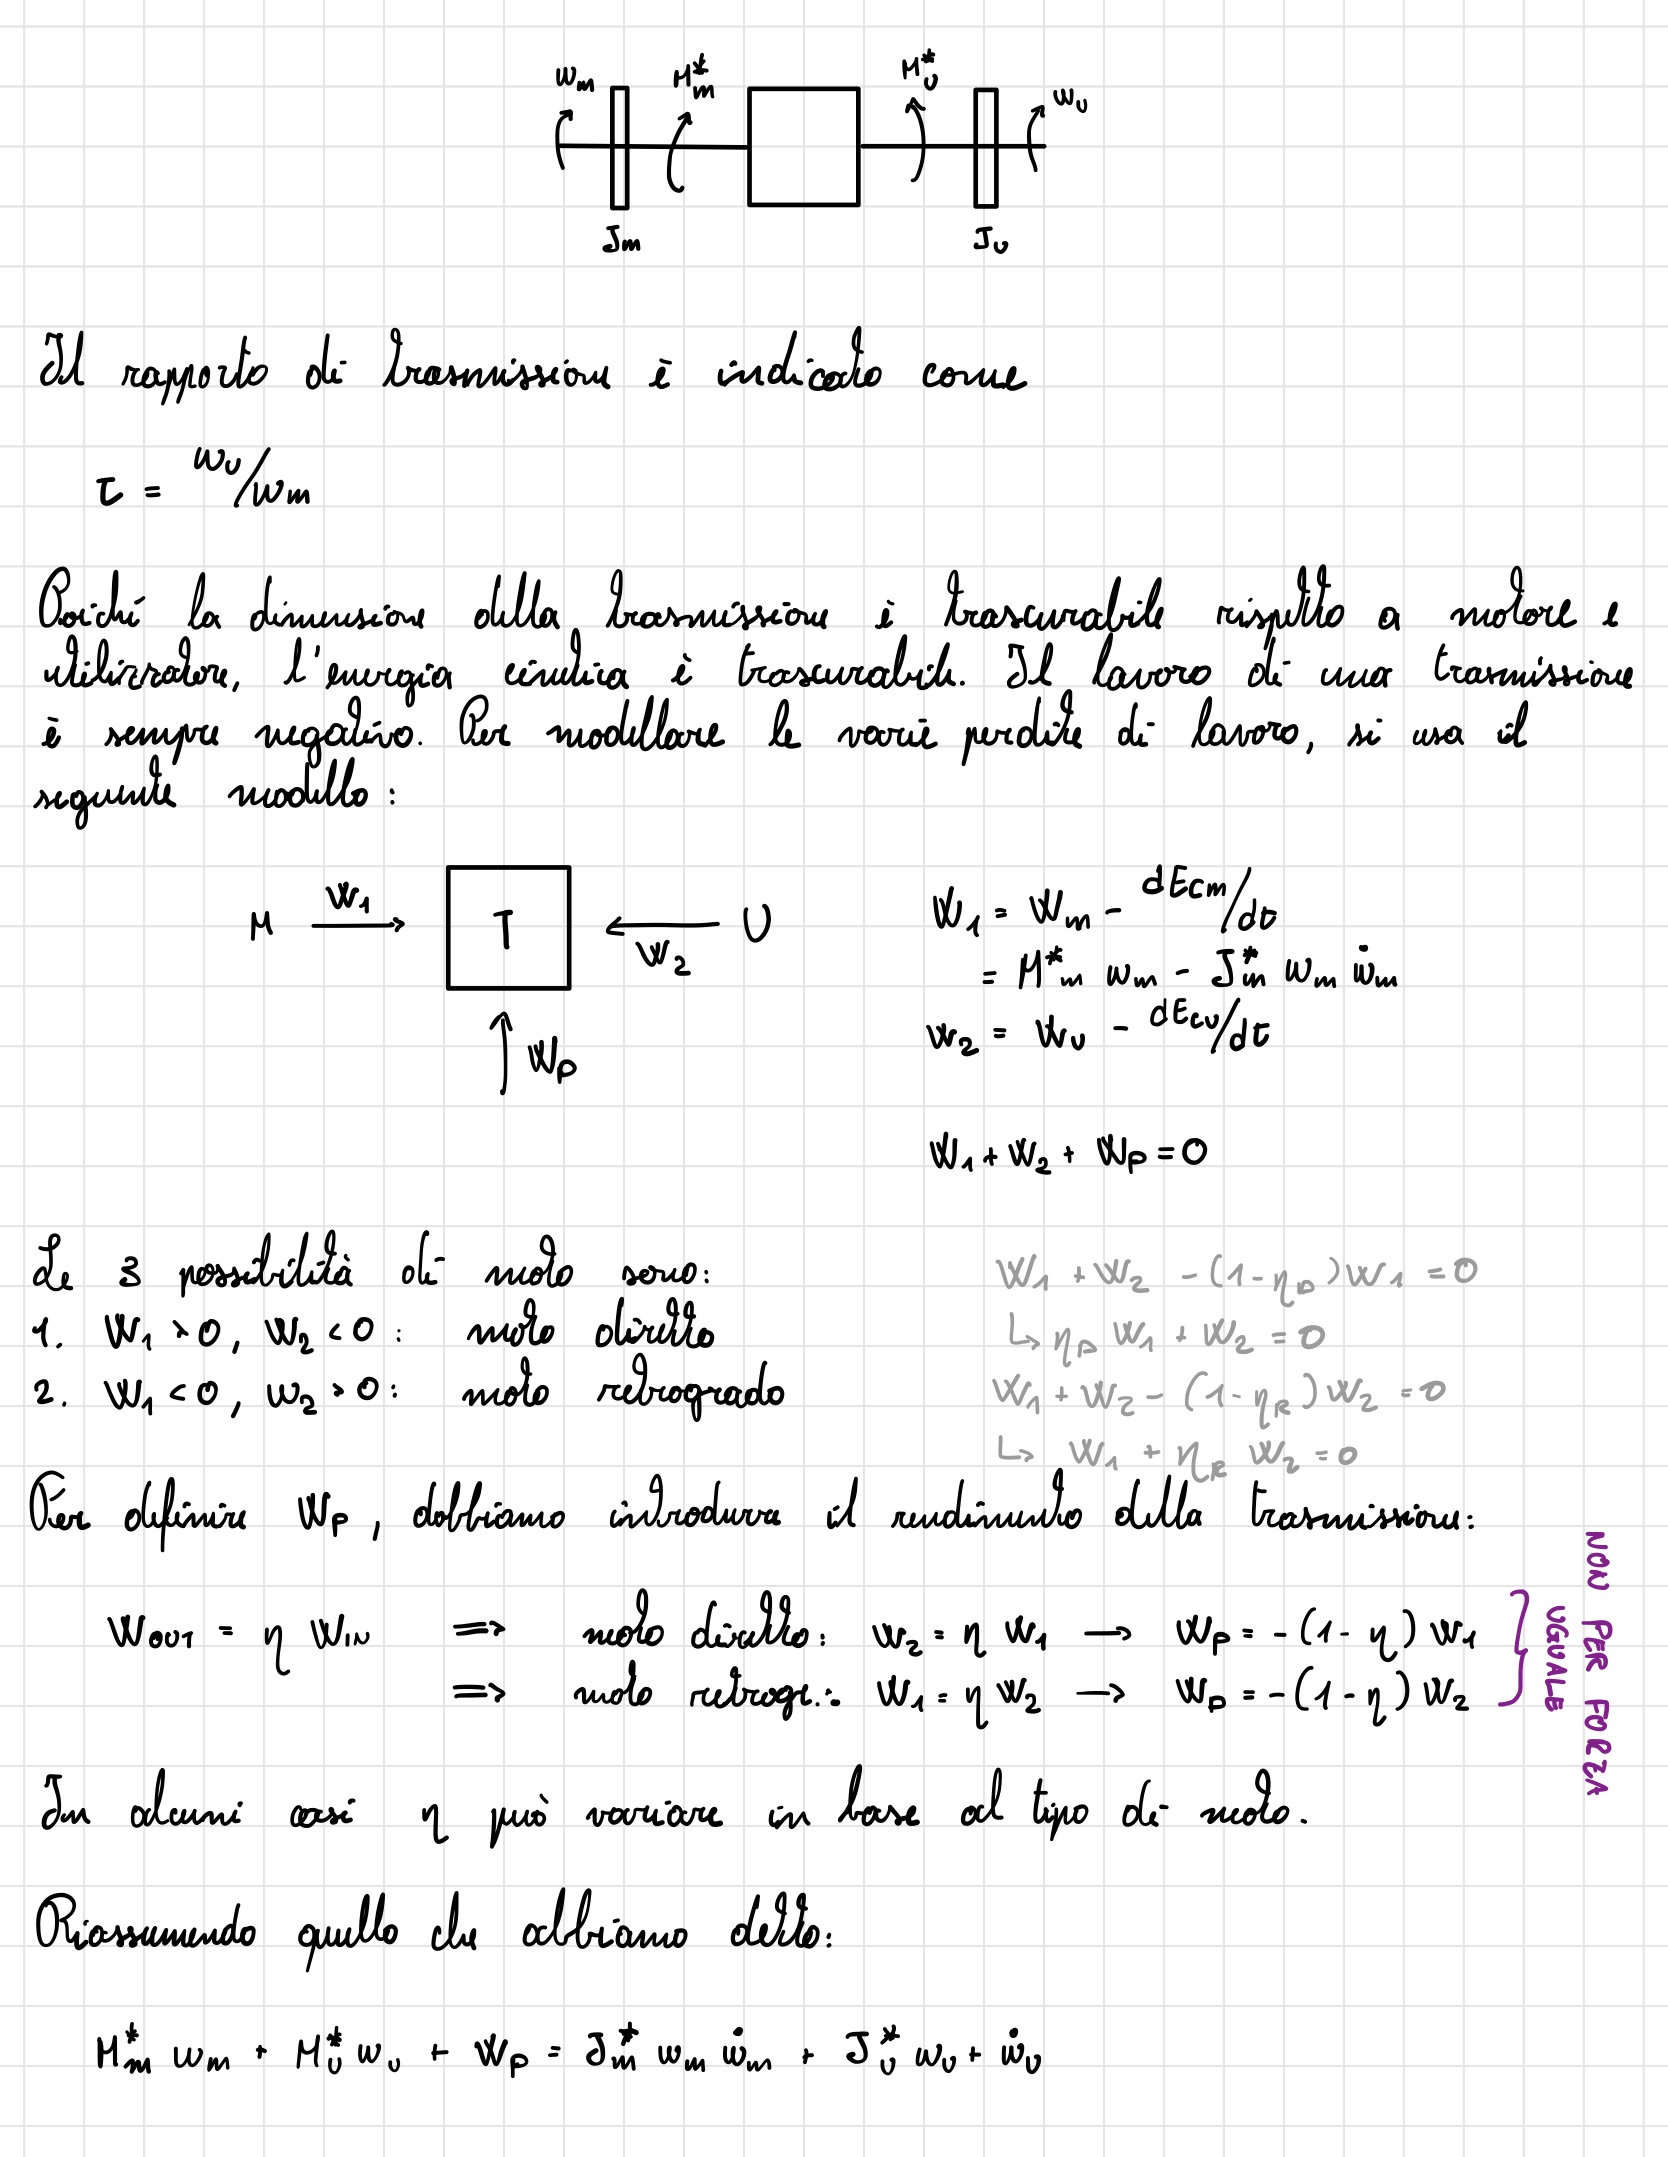 ωm M*m M*υ ωυ
Jm Jυ
Il rapporto di trasmissione è indicato come
τ = ωυ/ωm
Poiché la dimensione della trasmissione è trascurabile rispetto a motore e
utilizzatore, l'energia cinetica è trascurabile. Il lavoro di una trasmissione
è sempre negativo. Per modellare le varie perdite di lavoro, si usa il
seguente modello:
M W1 T W2 U
Wp
W1 = Wm - dEcm/dt
= M*m ωm - J*m ωm ω̇m
W2 = Wυ - dEcυ/dt
W1 + W2 + Wp = 0
Le 3 possibilità di moto sono:
1. W1 > 0, W2 < 0: moto diretto
2. W1 < 0, W2 > 0: moto retrogrado
W1 + W2 - (1-ηD)W1 = 0
↳ ηD W1 + W2 = 0
W1 + W2 - (1-ηR)W2 = 0
↳ W1 + ηR W2 = 0
Per definire Wp, dobbiamo introdurre il rendimento della trasmissione:
WOUT = η WIN ⇒ moto diretto: W2 = η W1 → Wp = -(1-η) W1
⇒ moto retrogr.: W1 = η W2 → Wp = -(1-η) W2
NON PER FORZA
UGUALE
In alcuni casi η può variare in base al tipo di moto.
Riassumendo quello che abbiamo detto:
M*m ωm + M*υ ωυ + Wp = J*m ωm ω̇m + J*υ ωυ + ω̇υ